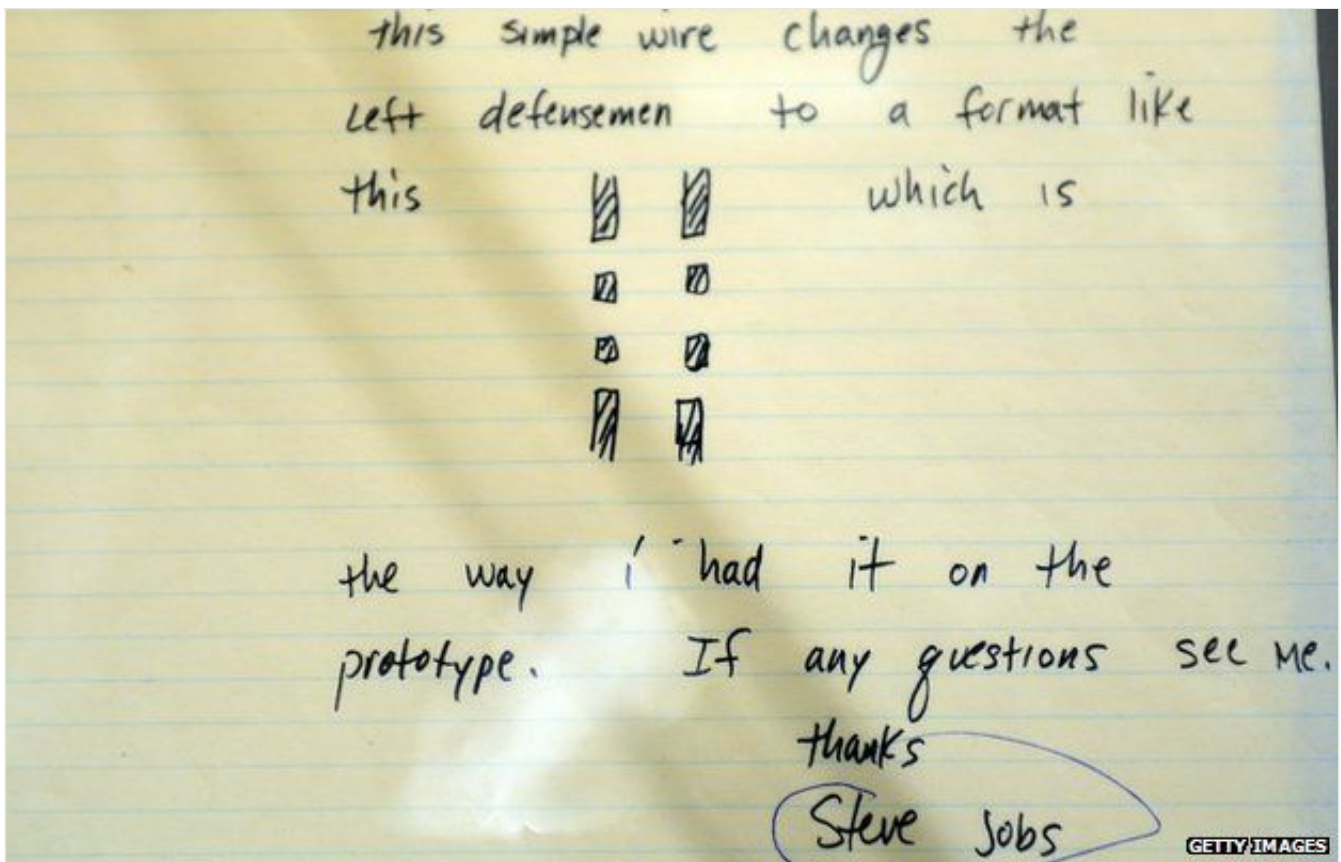 this simple wire changes the
left defensemen to a format like
this which is
the way i had it on the
prototype. If any questions see me.
thanks
Steve Jobs
GETTY IMAGES